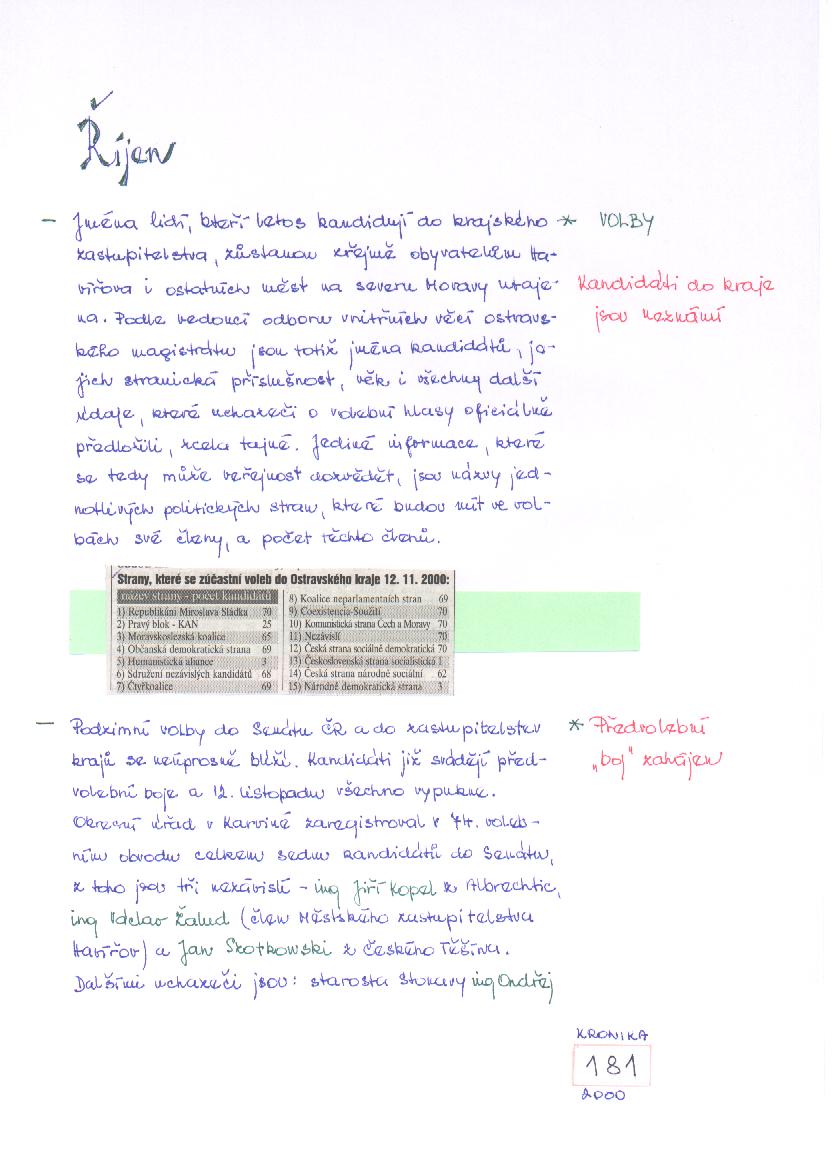 Říjen
— Jména lidí, kteří letos kandidují do krajského * VOLBY
zastupitelstva, zůstanou zřejmě obyvatelům Ha-
vířova i ostatních měst na severu Moravy utaje-
na. Podle vedoucí odboru vnitřních věcí ostravs-
Kandidáti do kraje
jsou neznámí
kého magistrátu jsou totiž jména kandidátů, je-
jich stranická příslušnost, věk i všechny další
údaje, které uchazeči o volební hlasy oficiálně
předložili, zcela tajné. Jediné informace, které
se tedy může veřejnost dozvědět, jsou názvy jed-
notlivých politických stran, které budou mít ve vol-
bách své členy, a počet těchto členů.
Strany, které se zúčastní voleb do Ostravského kraje 12. 11. 2000:
název strany - počet kandidátů
1) Republikáni Miroslava Sládka 70
2) Pravý blok - KAN 25
3) Moravskoslezská koalice 65
4) Občanská demokratická strana 69
5) Humanistická aliance 3
6) Sdružení nezávislých kandidátů 68
7) Čtyřkoalice 69
8) Koalice neparlamentních stran 69
9) Coexistencia-Soužití 70
10) Komunistická strana Čech a Moravy 70
11) Nezávislí 70
12) Česká strana sociálně demokratická 70
13) Československá strana socialistická 1
14) Česká strana národně sociální 62
15) Národně demokratická strana 3
— Podzimní volby do Senátu ČR a do zastupitelstev
krajů se neúprosně blíží. Kandidáti již svádějí před-
volební boje a 12. listopadu všechno vypukne.
* Předvolební
„boj" zahájen
Okresní úřad v Karviné zaregistroval v 74. voleb-
ním obvodu celkem sedm kandidátů do Senátu,
z toho jsou tři nezávislí - ing Jiří Kopel z Albrechtic,
ing Václav Žalud (člen Městského zastupitelstva
Havířov) a Jan Szotkowski z Českého Těšína.
Dalšími uchazeči jsou: starosta Stonavy ing Ondřej
KRONIKA
181
2000